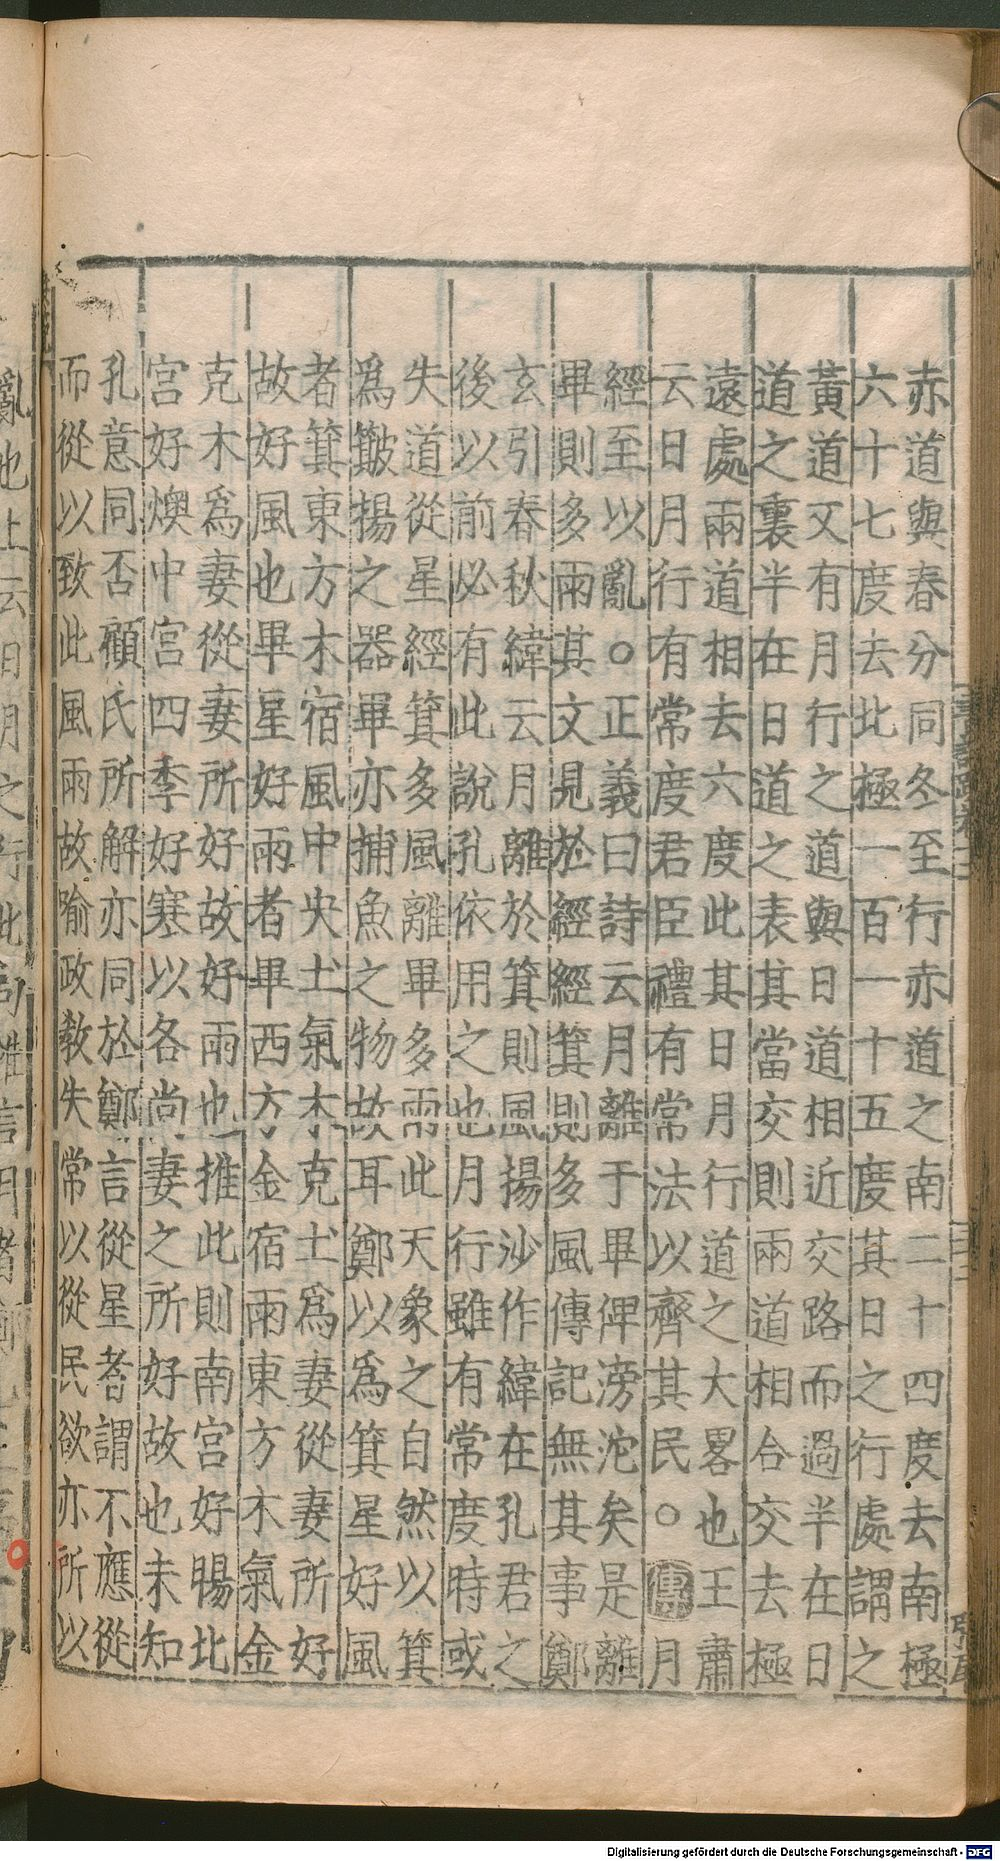 赤道與春分同冬至行赤道之南二十四度去南極
六十七度去北極一百一十五度其日之行處謂之
黃道又有月行之道與日道相近交路而過半在日
道之裏半在日道之表其當交則兩道相合交去極
遠處兩道相去六度此其日月行道之大畧也王肅
云日月行有常度君臣禮有常法以齊其民○傳月
經至以亂○正義曰詩云月離于畢俾滂沱矣是離
畢則多雨其文見於經經箕則多風傳記無其事鄭
玄引春秋緯云月離於箕則風揚沙作緯在孔君之
後以前必有此說孔依用之也月行雖有常度時或
失道從星經箕多風離畢多雨此天象之自然以箕
爲簸揚之器畢亦捕魚之物故耳鄭以爲箕星好風
者箕東方木宿風中央土氣木克土爲妻從妻所好
故好風也畢星好雨者畢西方金宿雨東方木氣金
克木爲妻從妻所好故好雨也推此則南宮好暘北
宮好燠中宮四季好寒以各尚妻之所好故也未知
孔意同否顧氏所解亦同於鄭言從星者謂不應從
而從以致此風雨故喻政教失常以從民欲亦所以
Digitalisierung gefördert durch die Deutsche Forschungsgemeinschaft - DFG